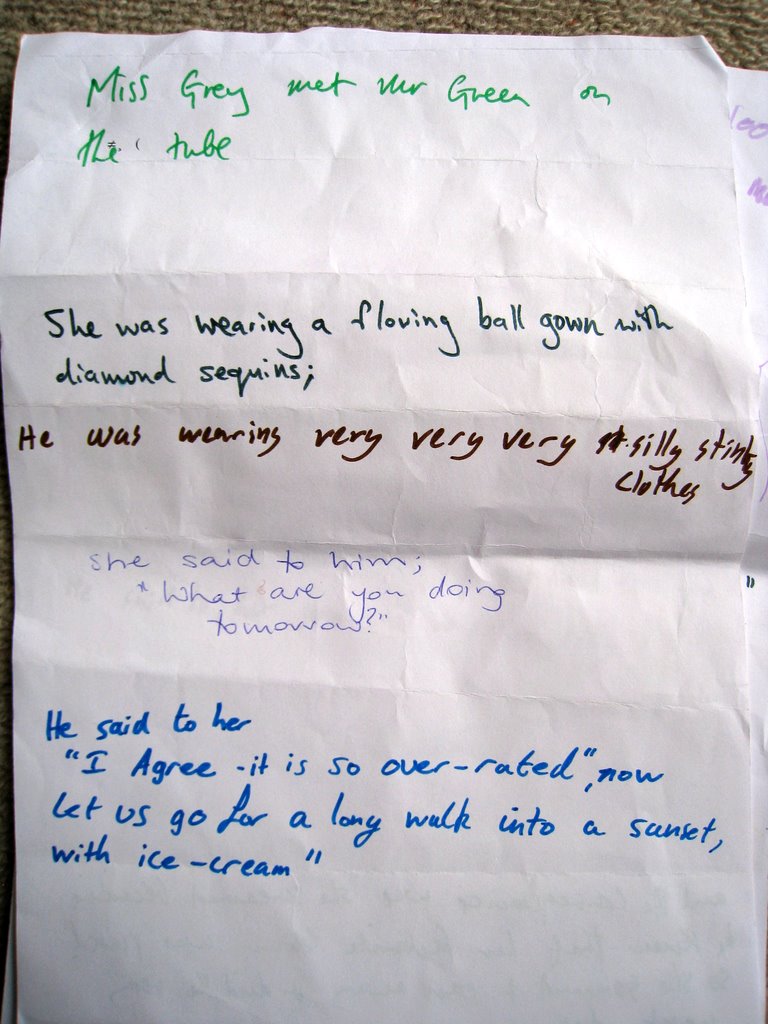 Miss Grey met Mr Green on
the tube
She was wearing a flowing ball gown with
diamond sequins;
He was wearing very very very silly stinky
clothes
she said to him;
"What are you doing
tomorrow?"
He said to her
"I Agree - it is so over-rated", now
let us go for a long walk into a sunset,
with ice-cream"